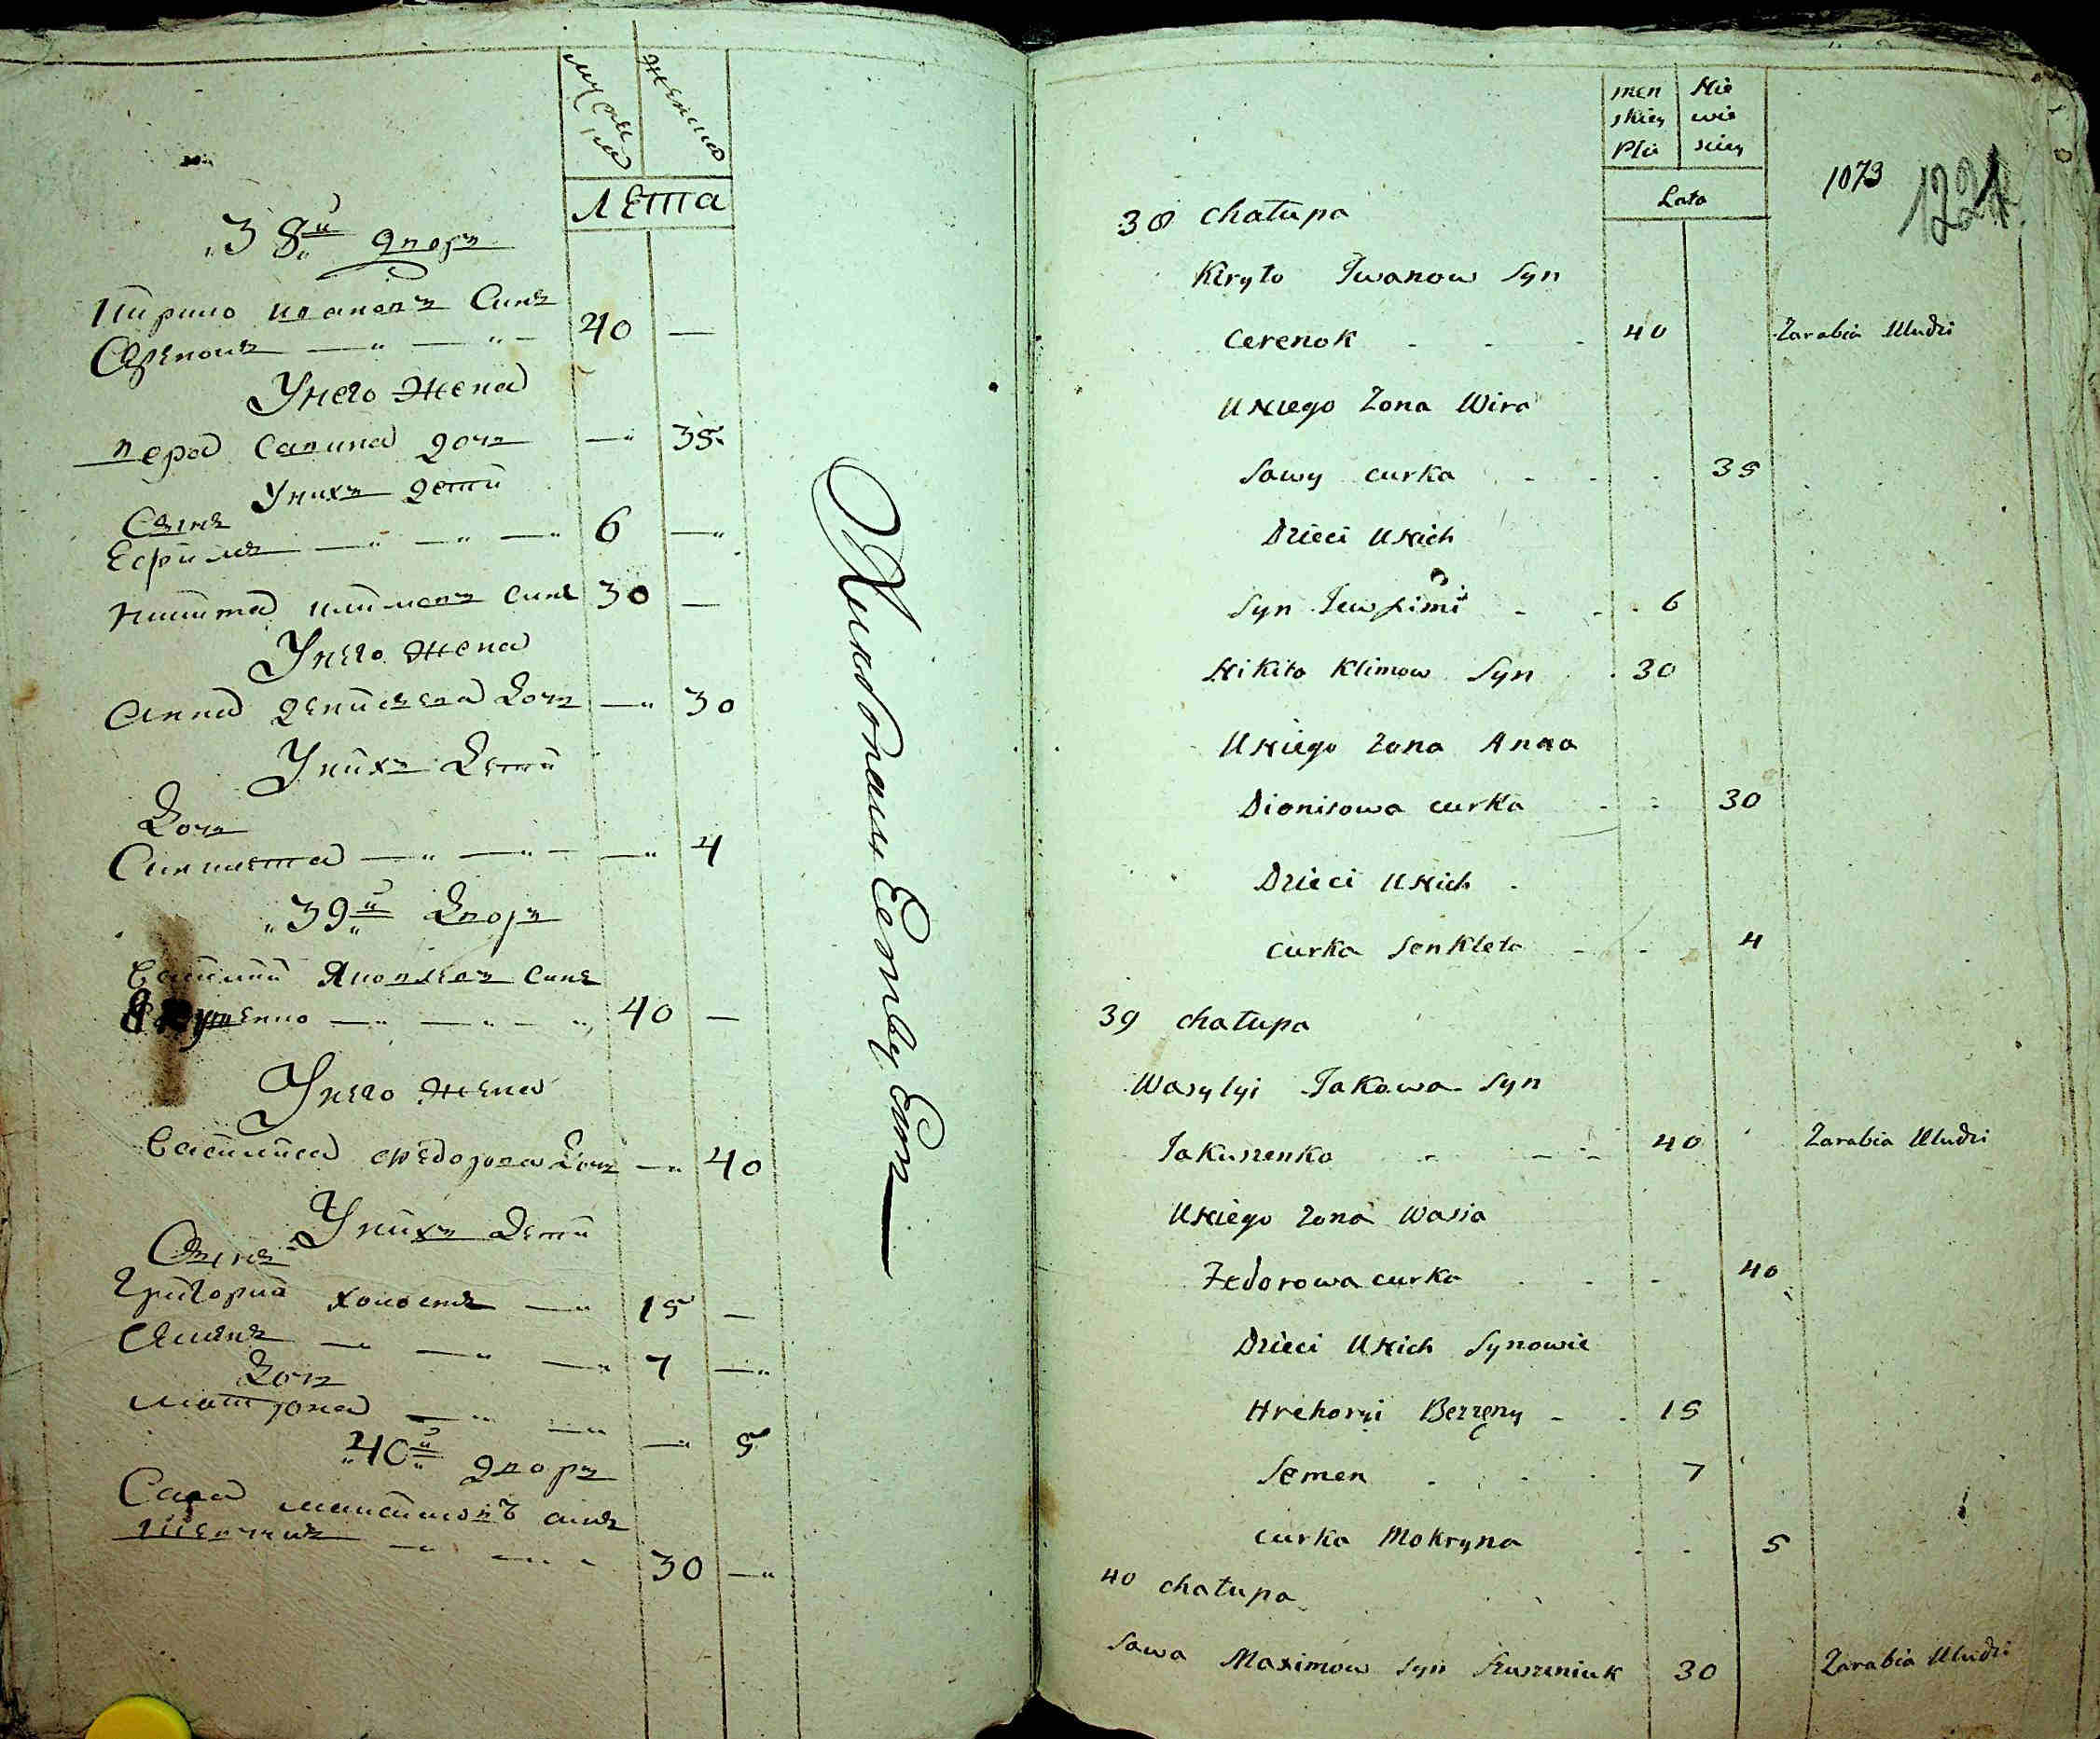 мужеска
женска
лета
38й дворъ
Кирило Ивановъ Синъ
Серенокъ 40 —
Унего жена
вера Савина дочь — 35
Унихъ дети
Сынъ
Ефимъ 6 —
никита климовъ синъ 30 —
Унего жена
Анна денисьева дочь — 30
Унихъ дети
Дочь
Синклета — 4
39й дворъ
Василий Яковлевъ синъ
40 —
Унего жена
Василиса федорова дочь — 40
Унихъ дети
Сынъ
Григорий холостъ 15 —
7 —
дочь
матрона — 5
40й дворъ
Сава максимовъ синъ
30 —
men skiey Płci
Nie wie sciey
Lata
1073
1221
38 chałupa
Kiryło Iwanow Syn
Cerenok 40 Zarabia Uludzi
Uniego Zona Wira
Sawy curka 35
Dzieci Unich
Syn Jewfimi 6
Nikita Klimow Syn 30
Uniego Zona Anna
Dionisowa curka 30
Dzieci Unich
curka Senkleta 4
39 chałupa
Wasylyi Jakowa Syn
Jakuszenko 40 Zarabia Uludzi
Uniego Zona Wasia
Fedorowa curka 40
Dzieci Unich Synowie
Hrehoryi Bezzęny 15
Semen 7
curka Mokryna 5
40 chałupa
Sawa Maximow Syn 30 Zarabia Uludzi